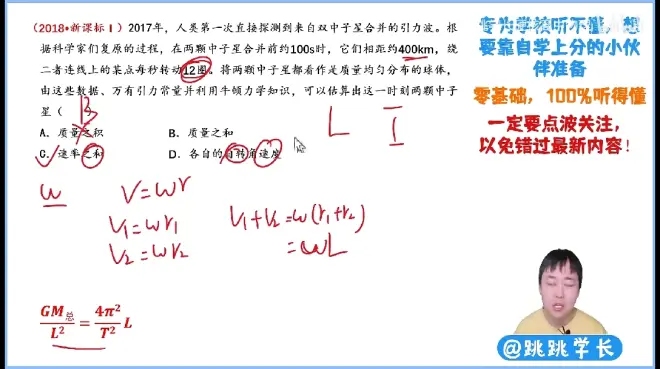 (2018•新课标Ⅰ) 2017年，人类第一次直接探测到来自双中子星合并的引力波。根
据科学家们复原的过程，在两颗中子星合并前约100s时，它们相距约400km，绕
二者连线上的某点每秒转动12圈。将两颗中子星都看作是质量均匀分布的球体，
由这些数据、万有引力常量并利用牛顿力学知识，可以估算出这一时刻两颗中子
星（ B
A．质量之积 B．质量之和
C．速率之和 D．各自的自转角速度
L I
ω V=ωr
V₁=ωr₁
V₂=ωr₂
V₁+V₂=ω(r₁+r₂)
=ωL
GM总/L²=4π²/T² L
专为学校听不懂，想
要靠自学上分的小伙
伴准备
零基础，100%听得懂
一定要点波关注，
以免错过最新内容！
@跳跳学长